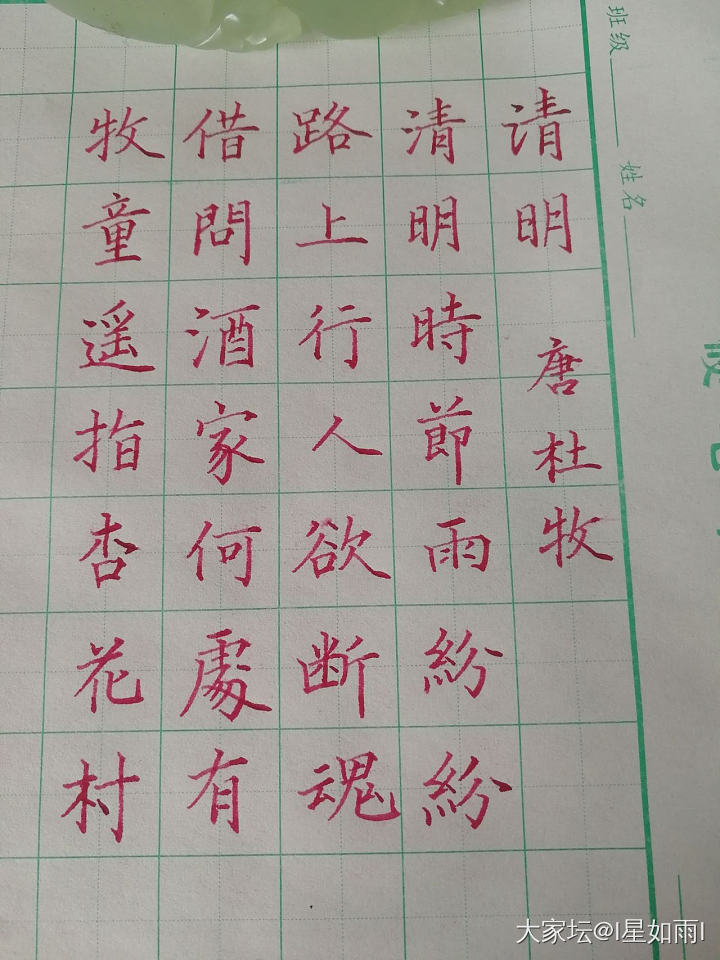 班级
姓名
请明
唐杜牧
清明時節雨紛紛
路上行人欲断魂
借問酒家何處有
牧童遥指杏花村
大家坛@I星如雨I